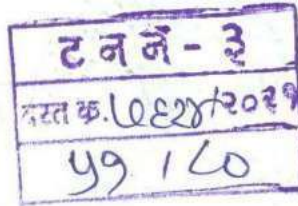 ट न नं - ३
दस्त क. ७६२४/२०२१
५१ / ८०